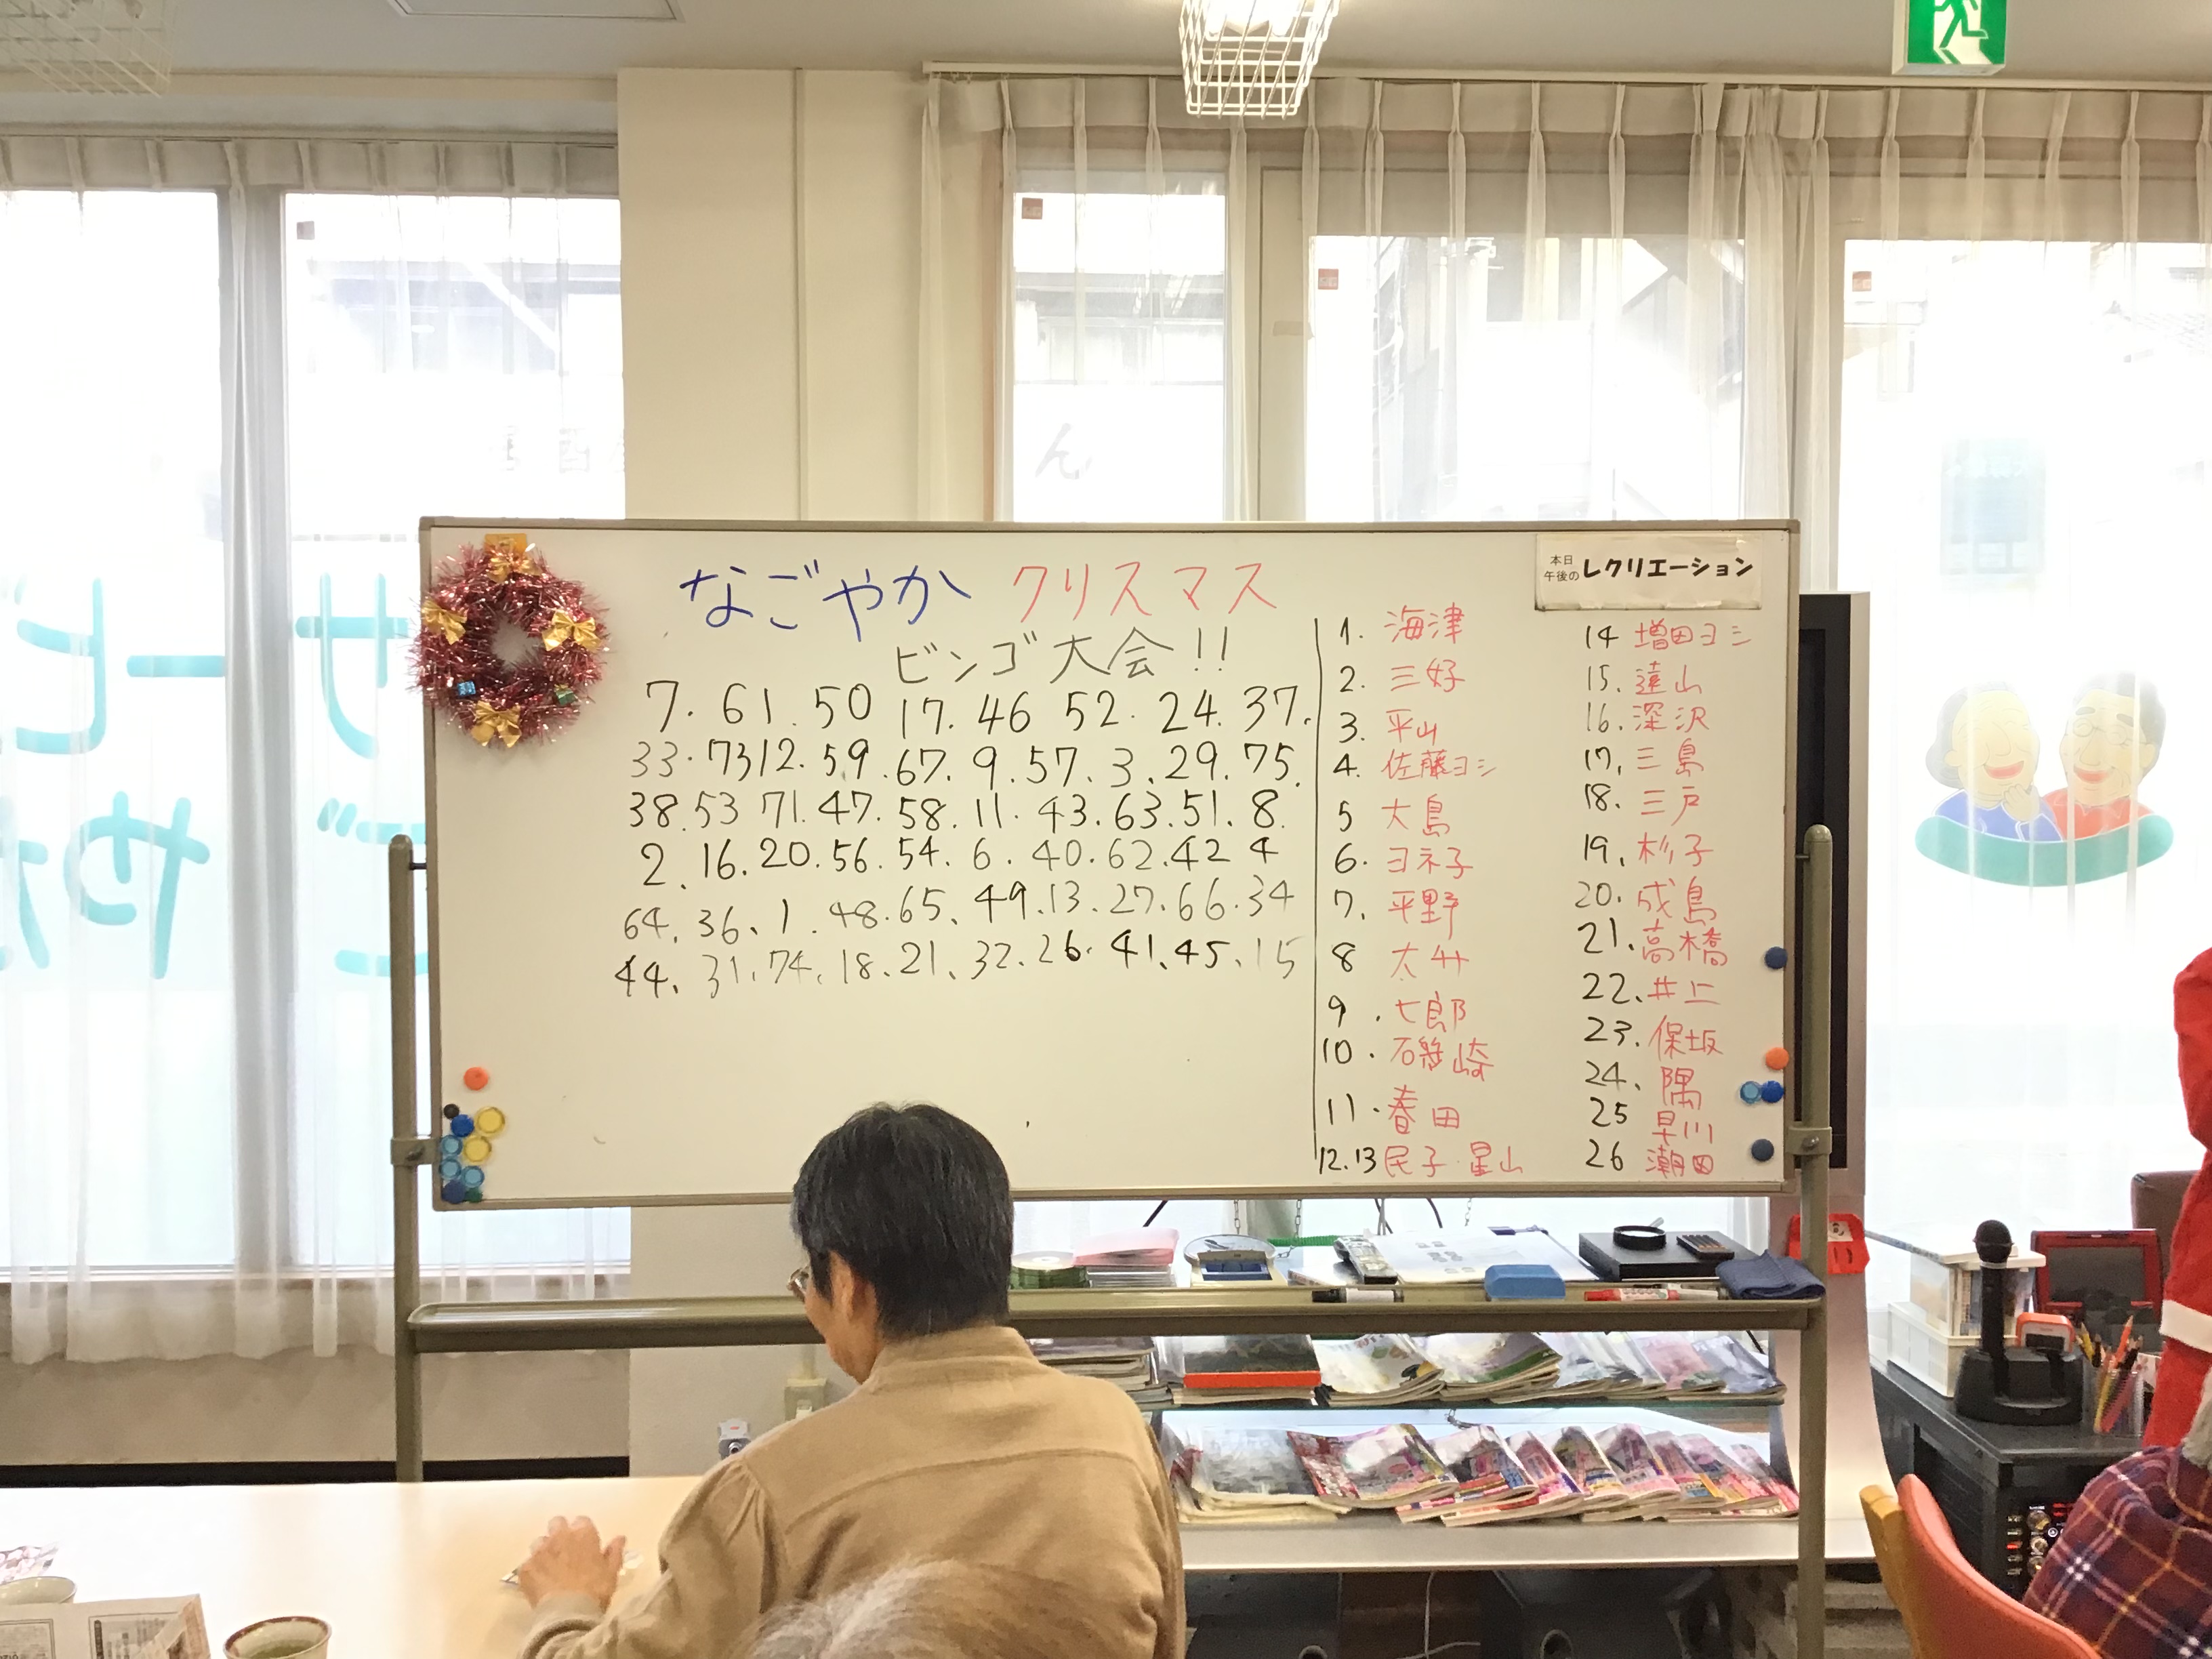 なごやか クリスマス
ビンゴ大会!!
7. 61. 50 17. 46 52. 24. 37.
33. 73 12. 59. 67. 9. 57. 3. 29. 75.
38. 53 71. 47. 58. 11. 43. 63. 51. 8.
2. 16. 20. 56. 54. 6. 40. 62. 42 4
64. 36. 1. 48. 65. 49. 13. 27. 66. 34
44. 31. 74. 18. 21. 32. 26. 41. 45. 15
本日
午後の レクリエーション
1. 海津
2. 三好
3. 平山
4. 佐藤ヨシ
5 大島
6. ヨネ子
7. 平野
8 大竹
9. 七郎
10.
11. 春田
12.13 民子・星山
14 増田ヨシ
15. 遠山
16. 深沢
17. 三島
18. 三戸
19. 杉子
20. 成島
21. 高橋
22. 井上
23. 保坂
24. 隅
25 早川
26 潮田
サービ
ごやか
ん